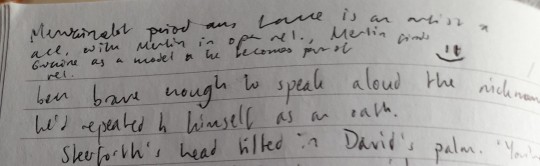 period aus Lance is an artist &
ace, with Merlin in open rel., Merlin finds
Gwaine as a model & he becomes part of
rel.
been brave enough to speak aloud the nickname
he'd repeated to himself as an oath.
Steerforth's head tilted in David's palm. 'You're